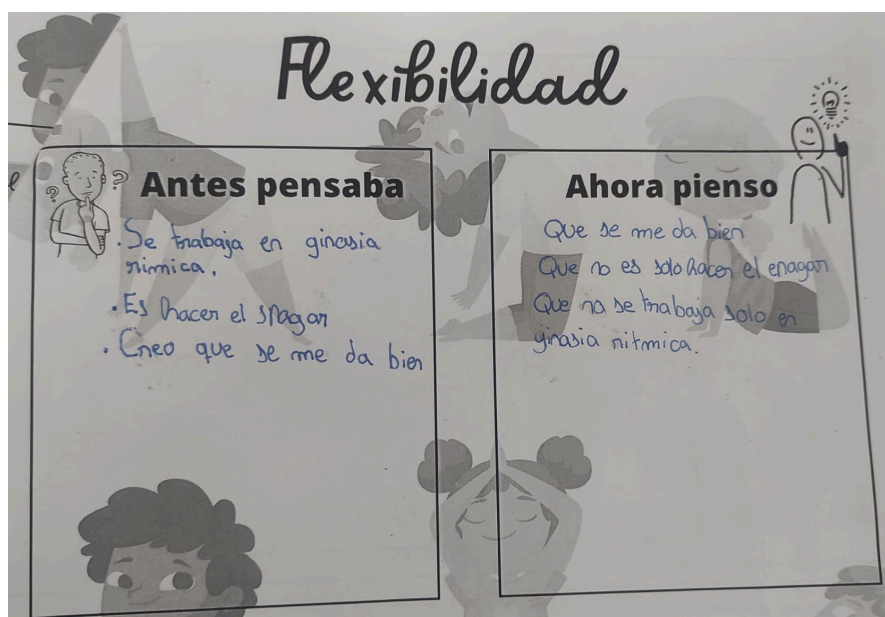 Flexibilidad
Antes pensaba
. Se trabaja en ginasia
rimica.
. Es hacer el spagar
. Creo que se me da bien
Ahora pienso
Que se me da bien
Que no es solo hacer el enagar
Que no se trabaja solo en
ginasia ritmica.